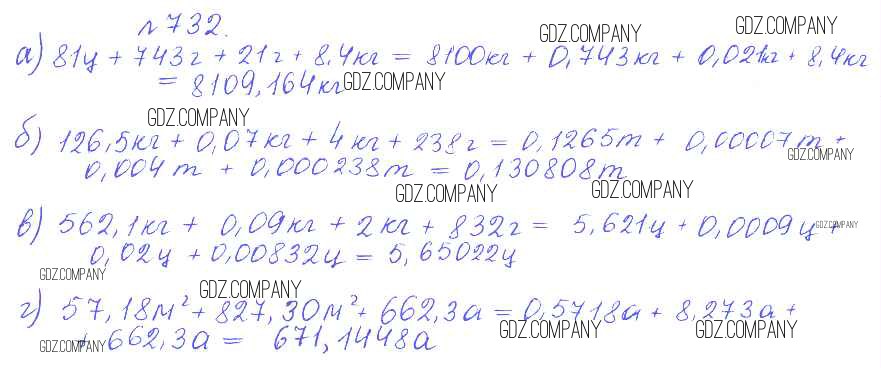 №732.
GDZ.COMPANY GDZ.COMPANY
а) 81ц + 743г + 21г + 8,4кг = 8100кг + 0,743кг + 0,021кг + 8,4кг
= 8109,164кг GDZ.COMPANY
GDZ.COMPANY
б) 126,5кг + 0,07кг + 4кг + 238г = 0,1265т + 0,00007т +
GDZ.COMPANY
0,004т + 0,000238т = 0,130808т
GDZ.COMPANY GDZ.COMPANY
в) 562,1кг + 0,09кг + 2кг + 832г = 5,621ц + 0,0009ц + GDZ.COMPANY
0,02ц + 0,00832ц = 5,65022ц
GDZ.COMPANY
GDZ.COMPANY
г) 57,18м² + 827,30м² + 662,3а = 0,5718а + 8,273а +
GDZ.COMPANY GDZ.COMPANY
GDZ.COMPANY + 662,3а = 671,1448а